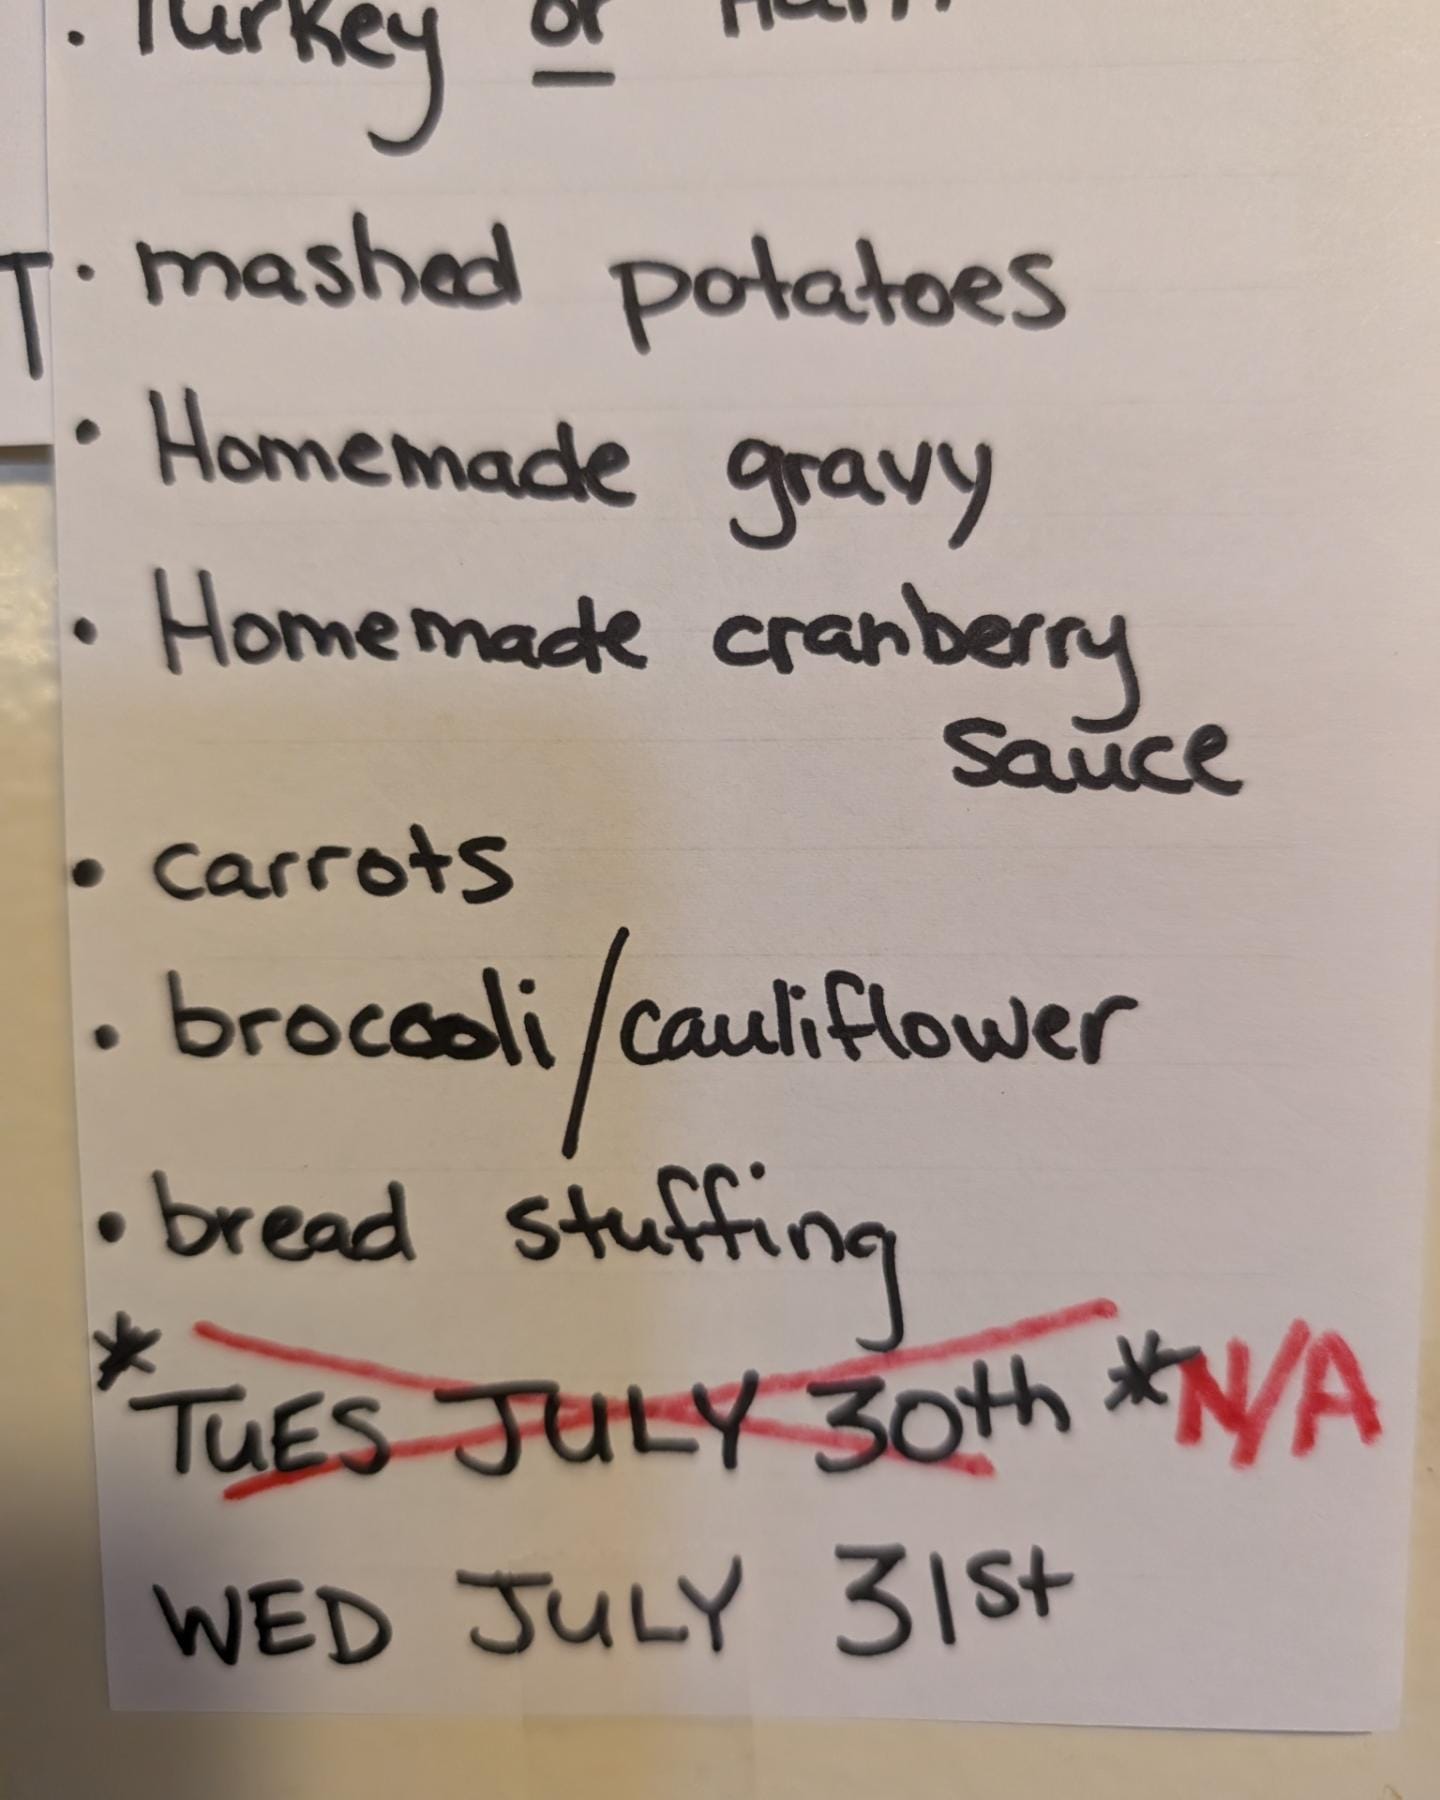 • Turkey or Ham
T
• mashed potatoes
• Homemade gravy
• Homemade cranberry
sauce
• carrots
• broccoli/cauliflower
• bread stuffing
* TUES JULY 30th * N/A
WED JULY 31st